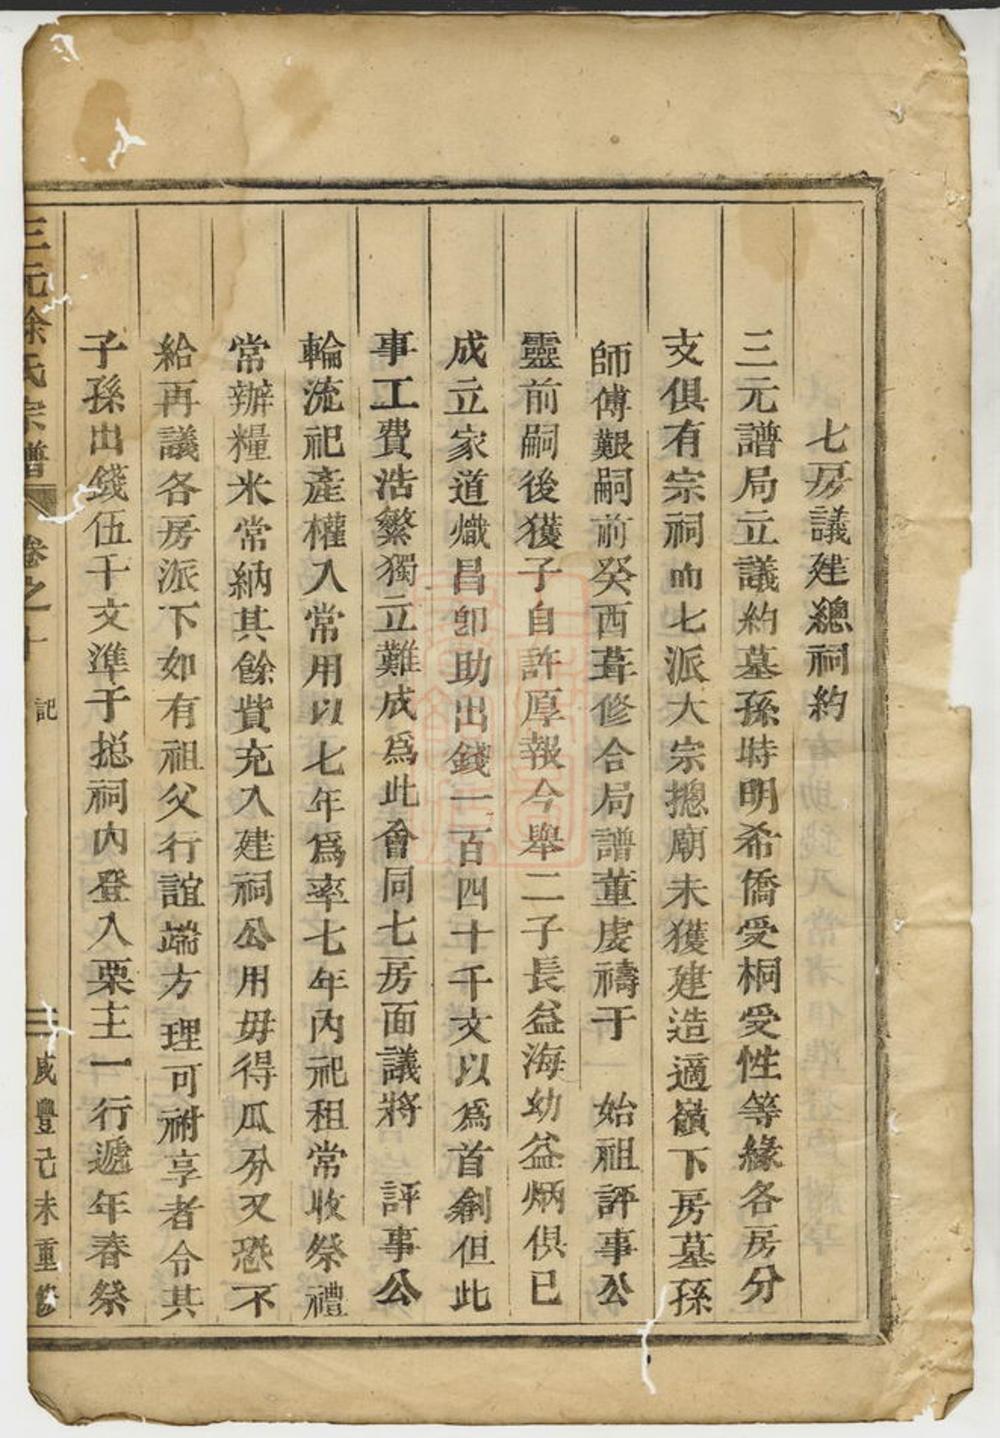 七房議建總祠約
三元譜局立議約墓孫時明希僑受桐受性等緣各房分
支俱有宗祠而七派大宗摠廟未獲建造適嶺下房墓孫
師傅艱嗣前癸酉葺修合局譜董虔禱于　始祖評事公
靈前嗣後獲子自許厚報今舉二子長益海幼益炳俱已
成立家道熾昌卽助出錢一百四十千文以爲首創但此
事工費浩繁獨立難成爲此會同七房面議將　評事公
輪流祀產權入常用以七年爲率七年內祀租常收祭禮
常辦糧米常納其餘貲充入建祠公用毋得瓜分又恐不
給再議各房派下如有祖父行誼端方理可祔享者令其
子孫出錢伍千文準于摠祠內登入栗主一行遞年春祭
三元徐氏宗譜　卷之十　記　三　咸豐己未重修